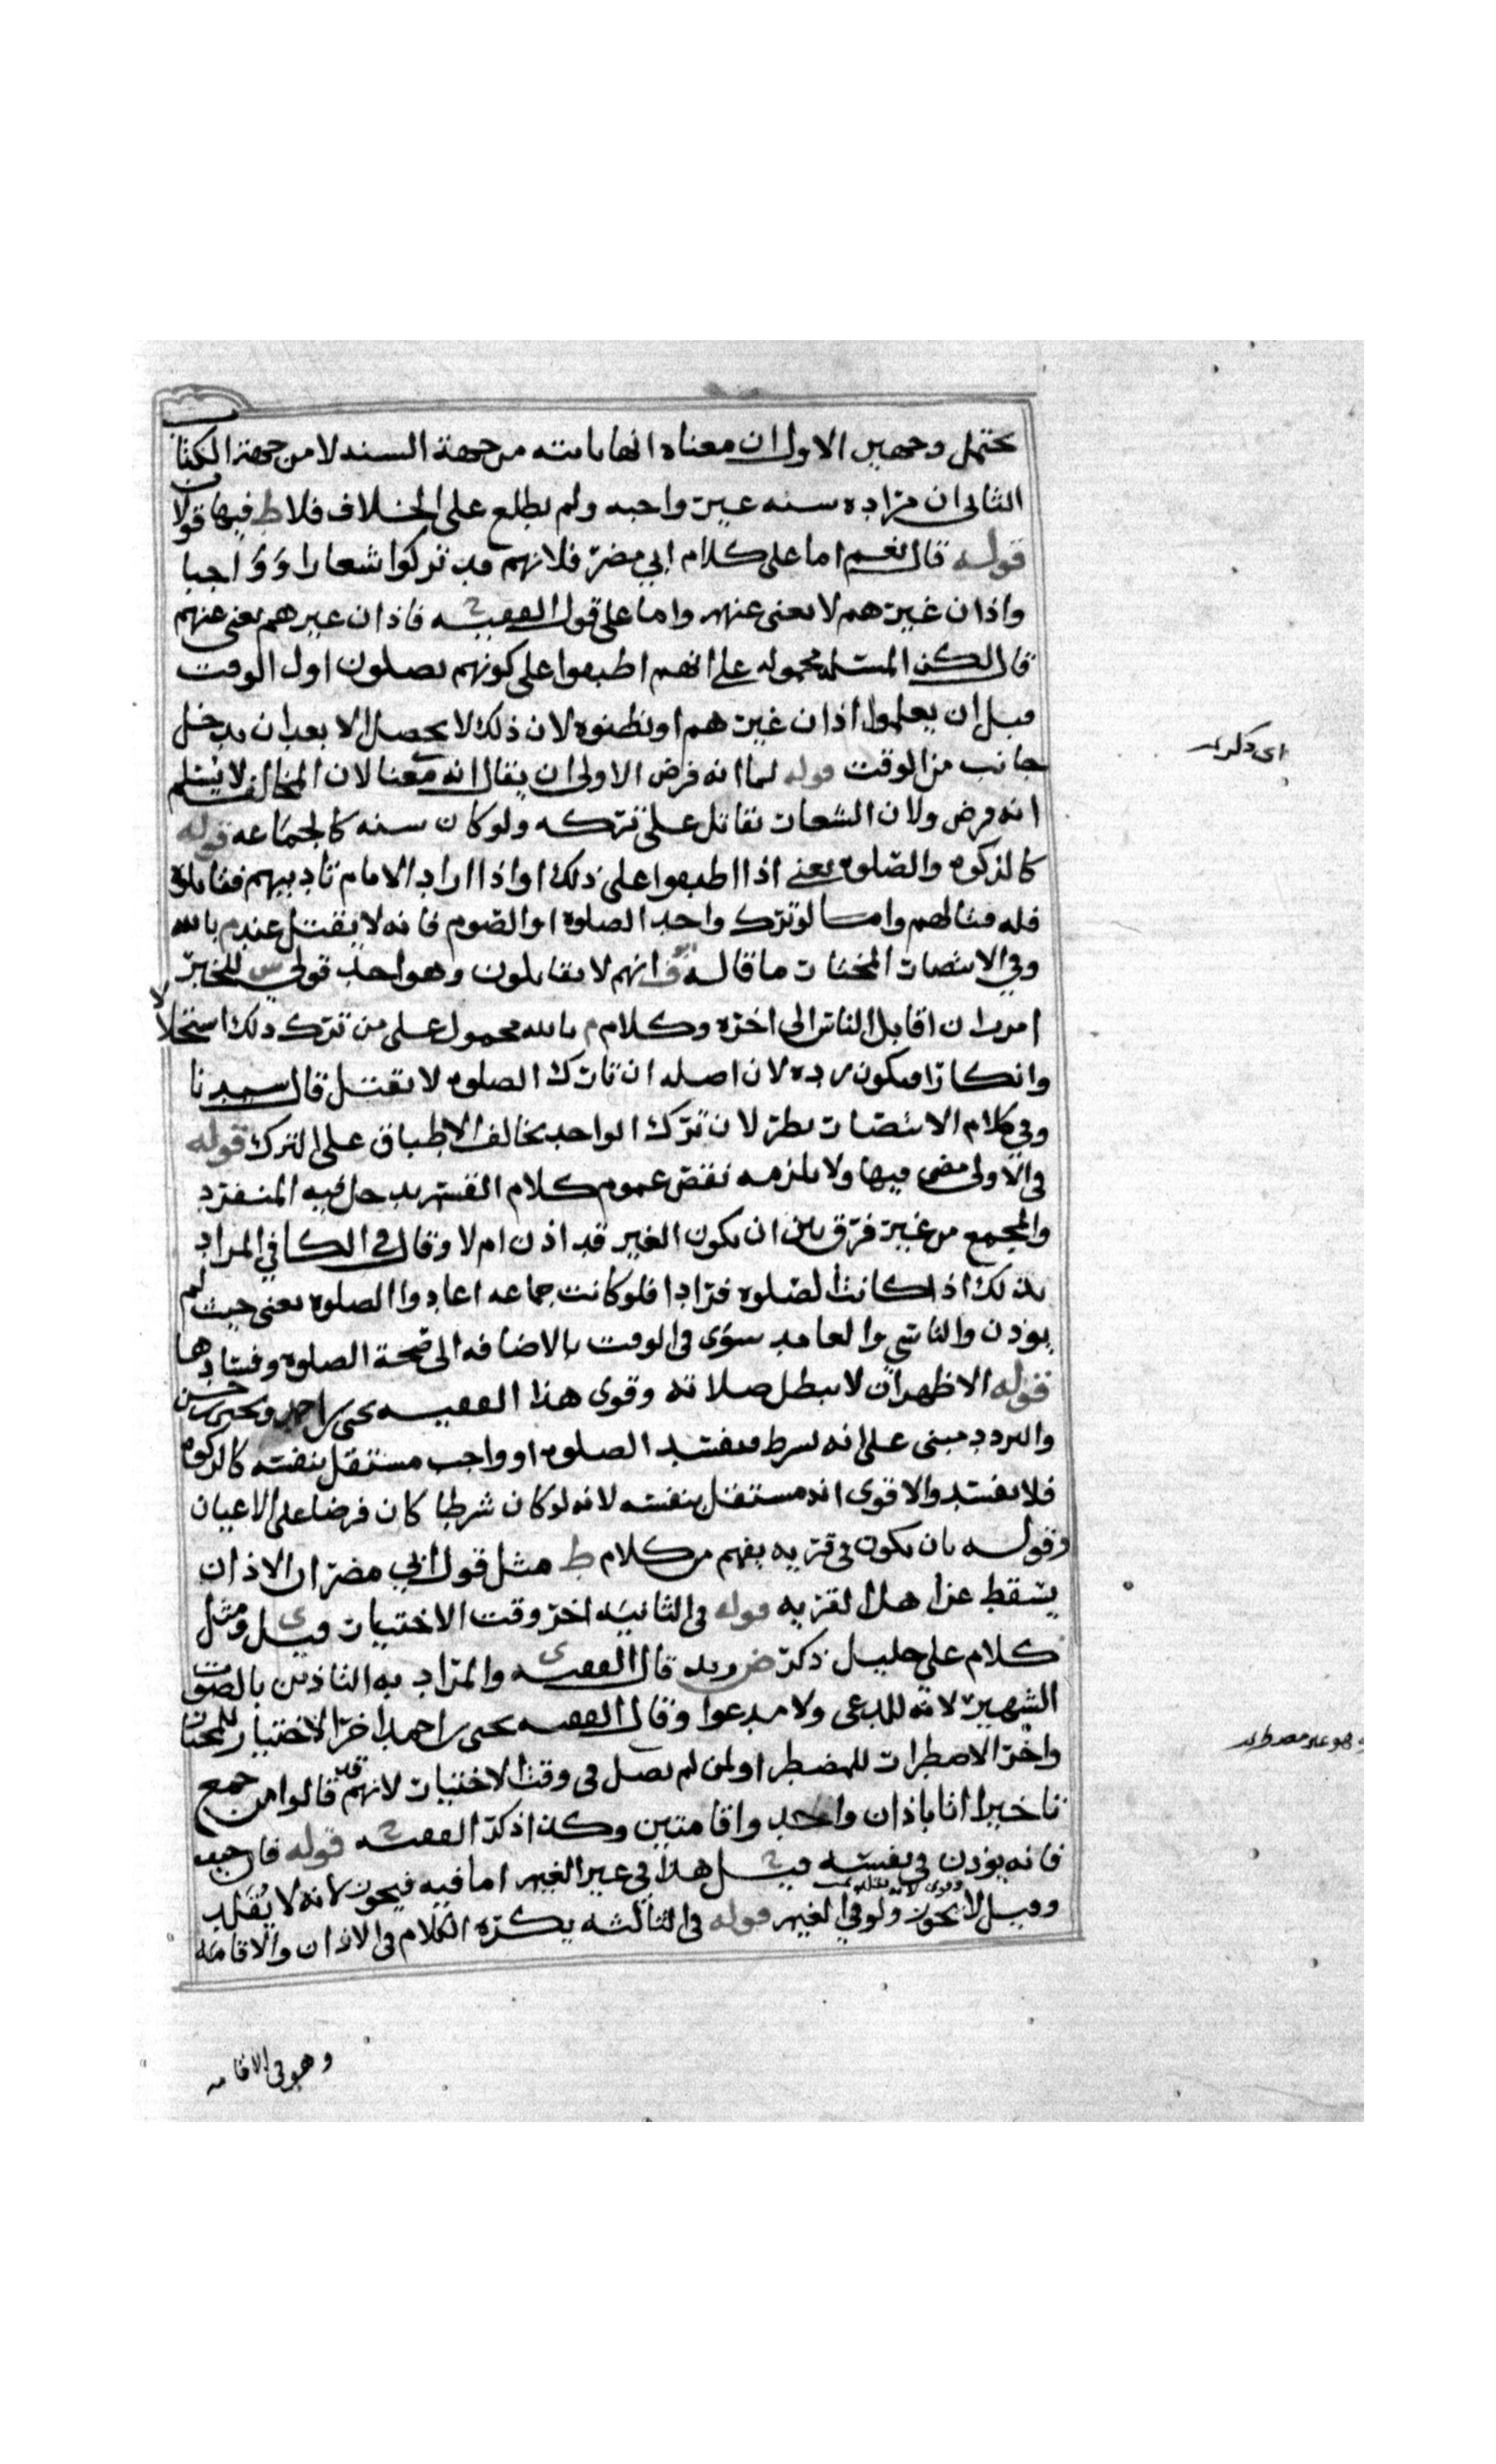 يحتمل وجهين الاول ان معناه انها ثابته من جهة السنه لا من جهة الكتاب
الثاني ان مراده سنه غير واجبه ولم يطلع على الخلاف فلا ط فيها قولان
قوله قال نعم اما على كلام ابي مضر فلانهم قد تركوا شعارا وواجبا
واذان غيرهم لا يغني عنهم واما على قول الفقيه ح فاذان غيرهم يغني عنهم
قال لكن المسله محموله على انهم اطبقوا على كونهم يصلون اول الوقت
قبل ان يعلموا اذان غيرهم او يظنوه لان ذلك لا يحصل الا بعد ان يدخل
جانب من الوقت قوله لما انه فرض الاولى ان يقال انه معنا لان المخالف لا يسلم
انه فرض ولان الشعار يقاتل على تركه ولو كان سنه كالجماعه قوله
كالزكوه والصلوه يعني اذا اطبقوا على ذلك او اذا اراد الامام تاديبهم فقاتلوه
فله قتالهم واما لو ترك واحد الصلوة او الصوم فانه لا يقتل عند م بالله
وفي الانتصار المختار ما قاله انهم لا يقاتلون وهو احد قولي للخبر
امرت ان اقاتل الناس الى اخره وكلام م بالله محمول على من ترك ذلك استحلالا
وانكارا فيكون رده لان اصله ان تارك الصلوه لا يقتل قال سيدنا
وفي كلام الانتصار نظر لان ترك الواحد يخالف الاطباق على الترك قوله
في الاولى مضى فيها ولا يلزمه نقض عموم كلام القسم يدخل فيه المنفرد
والمجمع من غير فرق بين ان يكون الغير قد اذن ام لا وقال في الكافي المراد
بذلك اذا كانت الصلوه فرادا فلو كانت جماعه اعادوا الصلوه يعني حيث لم
يوذن والناسي والعامد سوى في الوقت بالاضافه الى صحة الصلوه وفسادها
قوله الاظهر ان لا يبطل صلاته وقوى هذا الفقيه يحيى بن احمد ويحيى بن حسن
والتردد مبني على انه شرط فيفسد الصلوه او واجب مستقل بنفسه كالزكوه
فلا يفسد والاقوى انه مستقل بنفسه لانه لو كان شرطا كان فرضا على الاعيان
وقوله بان يكون في قريه يفهم من كلام ط مثل قول ابي مضر ان الاذان
يسقط عن اهل القريه قوله في الثانيه اخر وقت الاختيار قيل ى ومثل
كلام علي خليل ذكر ض زيد قال الفقيه ى والمراد به التاذين بالصوت
الشهير لانه للدعى ولا مدعوا وقال الفقيه يحيى بن احمد اخر الاختيار للمختار
واخر الاضطرار للمضطر او لمن لم يصل في وقت الاختيار لانهم قد قالوا من جمع
تاخيرا اتا باذان واحد واقامتين وكذا ذكر الفقيه ح قوله فان
فانه يوذن في نفسه قيل ح هذا في غير الغيم اما فيه فيجوز لانه لا يقلد
وقيل لا يجوز ولو في الغيم قوله في الثالثه يكره الكلام في الاذان والاقامه
وهو في الاقامه